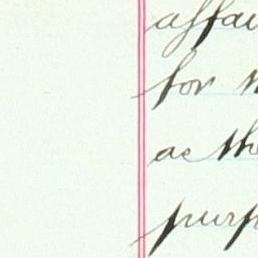 affai
for
as the
purp